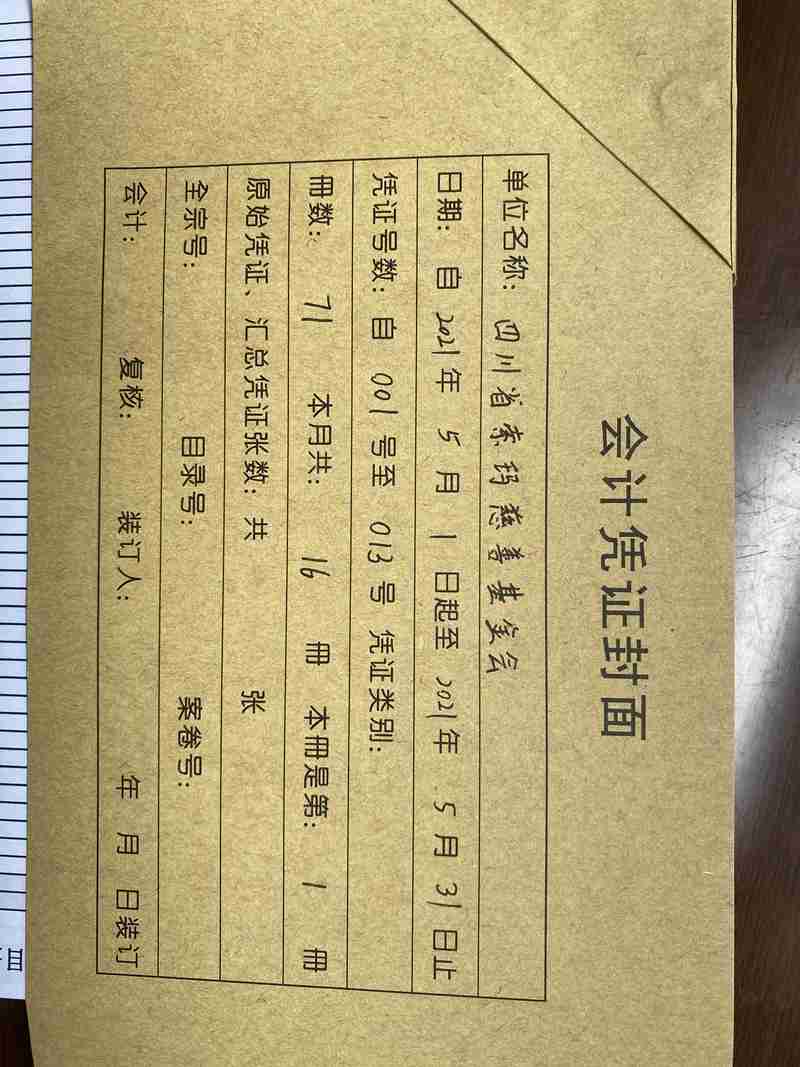 会计凭证封面
单位名称：四川省索玛慈善基金会
日期：自2021年5月1日起至2021年5月31日止
凭证号数：自001号至013号 凭证类别：
冊数：71 本月共：16冊 本冊是第：1冊
原始凭证、汇总凭证张数：共 张
全宗号： 目录号： 案卷号：
会计： 复核： 装订人： 年 月 日装订